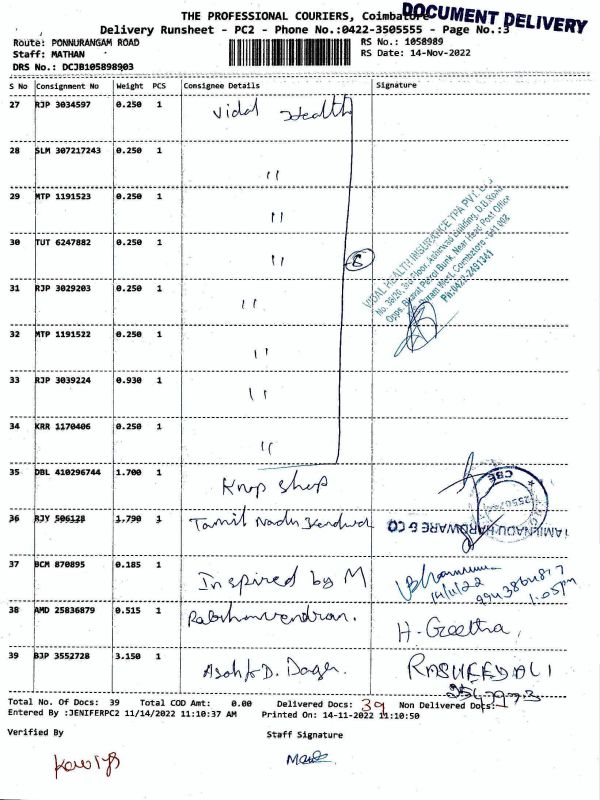 THE PROFESSIONAL COURIERS, Coimbatore
DOCUMENT DELIVERY
Delivery Runsheet - PC2 - Phone No.:0422-3505555 - Page No.:3
Route: PONNURANGAM ROAD RS No.: 1058989
Staff: MATHAN RS Date: 14-Nov-2022
DRS No.: DCJB105898903
S No Consignment No Weight PCS Consignee Details Signature
27 RJP 3034597 0.250 1 Vidal Health
28 SLM 307217243 0.250 1 "
29 MTP 1191523 0.250 1 "
30 TUT 6247882 0.250 1 "
8
VIDAL HEALTH INSURANCE TPA PVT. LTD
31 RJP 3029203 0.250 1 "
32 MTP 1191522 0.250 1 "
33 RJP 3039224 0.930 1 "
34 KRR 1170406 0.250 1 "
35 DBL 410296744 1.700 1 Knop Shop
CBE
36 RJY 506128 1.790 1 Tamil Nadu
TAMILNADU HARDWARE & CO
37 BCM 870895 0.185 1 Inspired by M
14/11/22
1.05pm
38 AMD 25836879 0.515 1 H. Geetha
39 BJP 3552728 3.150 1 RASHEEDALI
Total No. Of Docs: 39 Total COD Amt: 0.00 Delivered Docs: 39 Non Delivered Docs:
Entered By :JENIFERPC2 11/14/2022 11:10:37 AM Printed On: 14-11-2022 11:10:50
Verified By Staff Signature